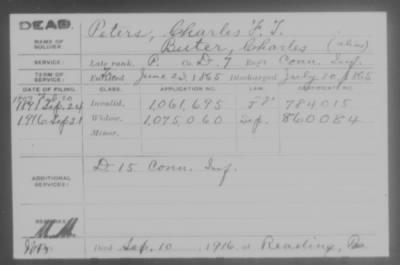 DEAD.
NAME OF SOLDIER: Peters, Charles F. T.
Buster, Charles (alias)
SERVICE: Late rank, P. Co. D. 7 Reg't Conn. Inf.
TERM OF SERVICE: Enlisted June 23, 1865 Discharged July 20, 1865
DATE OF FILING. CLASS. APPLICATION NO. LAW. CERTIFICATE NO.
Sep. 24 Invalid, 1,061,695 784015
1916 Sep. 21 Widow, 1,075,060 Sep. 860084
Minor,
ADDITIONAL SERVICES: D 15 Conn. Inf.
REMARKS:
Died Sep. 10, 1916 at Reading, Pa.